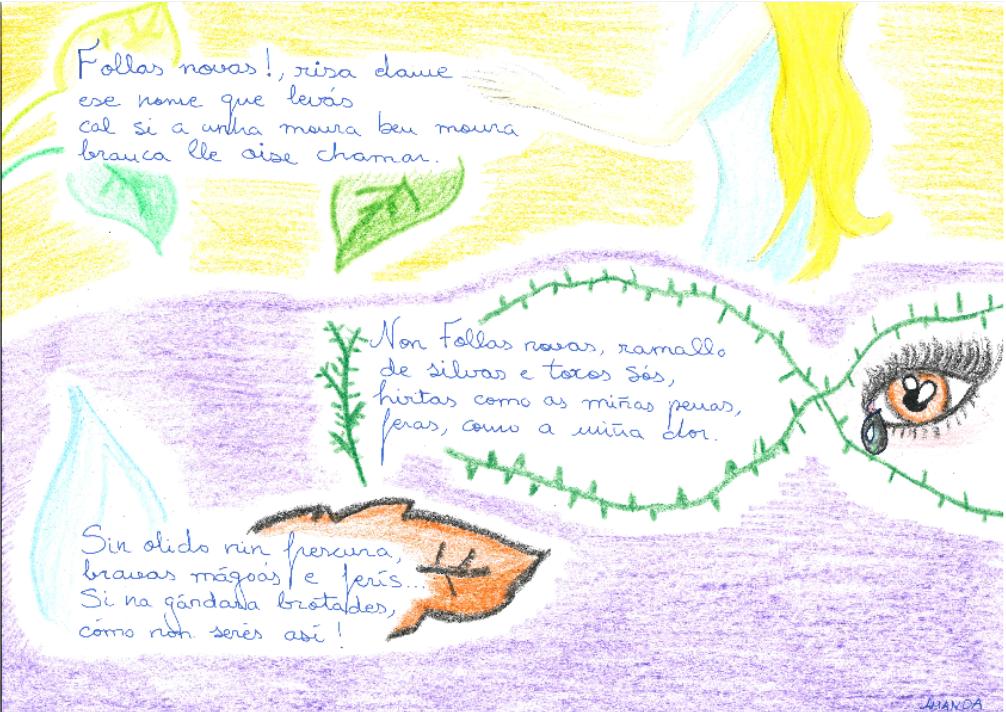 Follas novas!, risa dame
ese nome que levás
cal si a unha moura ben moura
branca lle oise chamar.
Non Follas novas, ramallo
de silvas e toxos sós,
hirtas como as miñas penas,
feras, como a miña dor.
Sin olido nin frescura,
bravas mágoas e ferís...
Si na gándara brotades,
cómo non serés así!
AMANDA